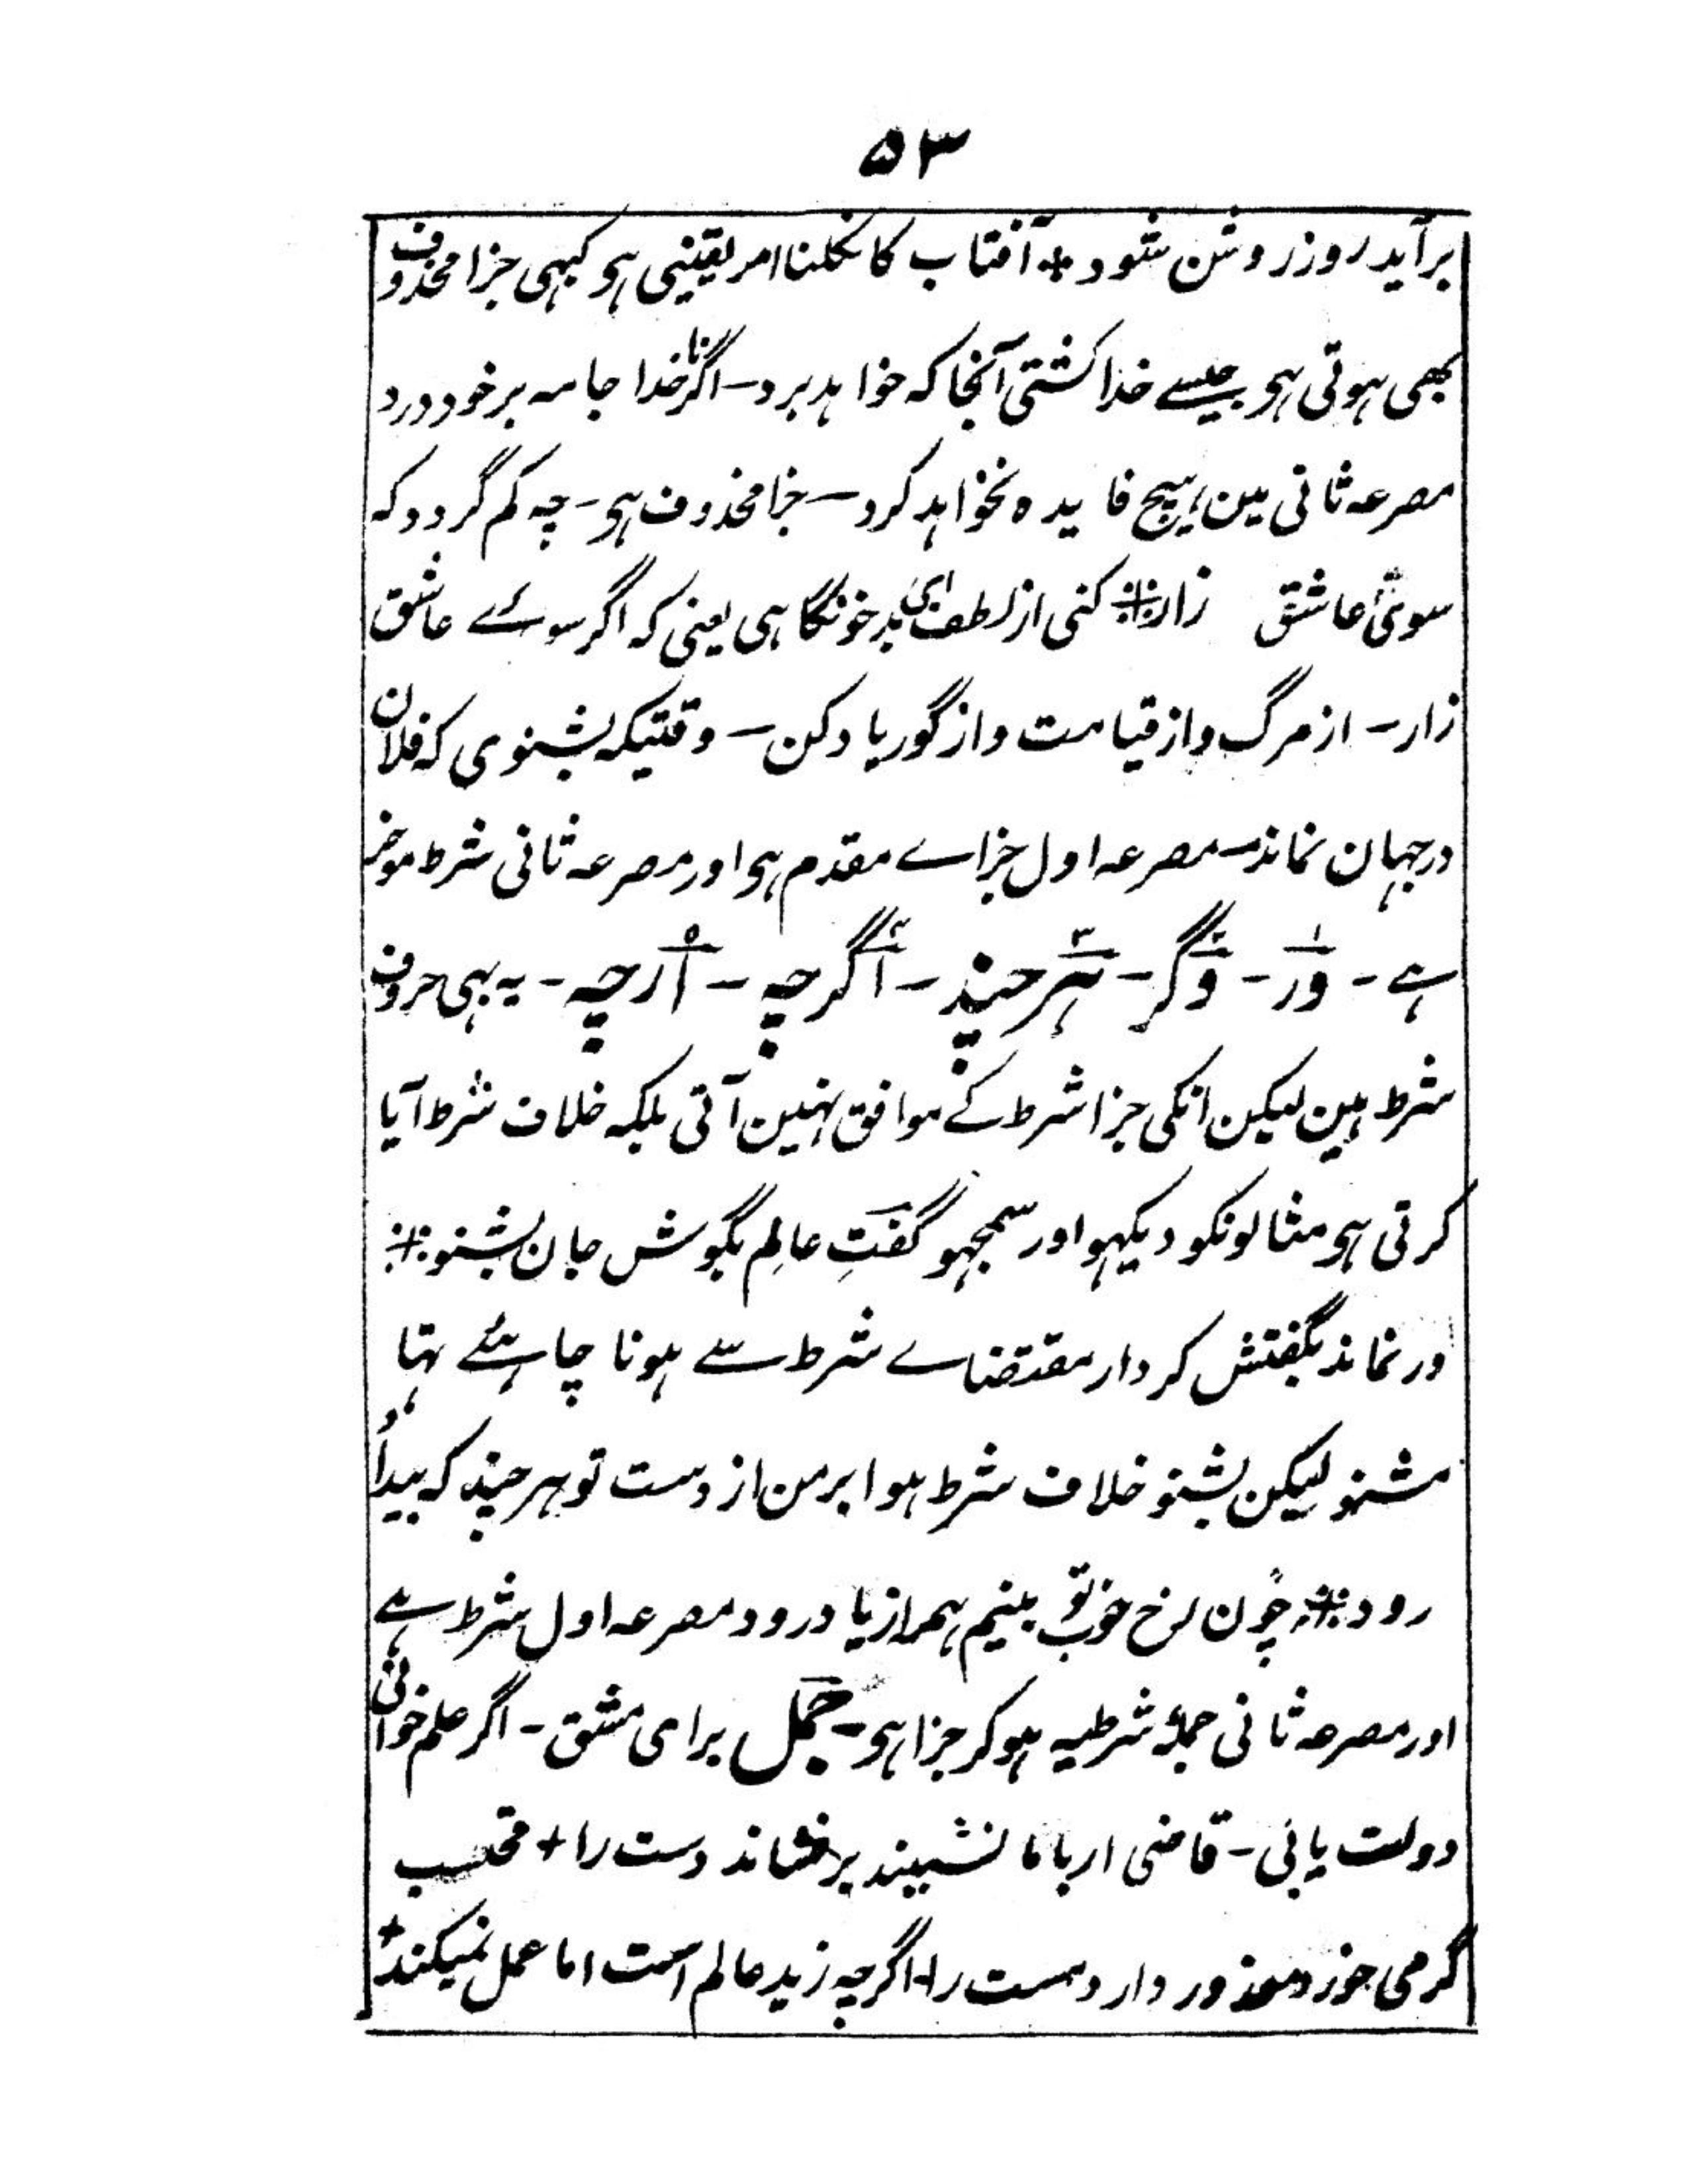 ۵۳
برآید روز روشن شود * آفتاب کا نکلنا امر یقینی ہی کبہی جزا محذوف
بھی ہوتی ہی جیسے خدا کشتی آنجا که خواہد برد - اگر ناخدا جامه بر خود درد
مصرعه ثانی مین ہیچ فایده نخواہد کرد - جزا محذوف ہی - چه کم گردد که
سوئ عاشق زار * کنی از لطف ای بدخو نگاہی یعنی که اگر سوے عاشق
زار - از مرگ و از قیامت و از گور یاد کن - وقتیکه بشنوی که فلان
در جہان نماند - مصرعه اول جزاے مقدم ہی اور مصرعه ثانی شرط موخر
ہے - ۱ ور - ۲ وگر - ۳ ہر چند - ۴ اگرچہ - ۵ ارچہ - یہ بہی حروف
شرط ہین لیکن انکی جزا شرط کے موافق نہین آتی بلکہ خلاف شرط آیا
کرتی ہی مثالونکو دیکہو اور سمجہو گفتِ عالِم بگوش جان بشنو *
ور نماند بگفتنش کردار مقتضاے شرط سے ہونا چاہئے تہا
مشنو لیکن بشنو خلاف شرط ہوا بر من از دست تو ہر چند که بیداد
رود * چون رخ خوب تو بینم ہمه از یاد رود مصرعه اول شرط ہے
اور مصرعه ثانی جملۂ شرطیہ ہو کر جزا ہی - جُمَل برای مشق - اگر علم خوانی
دولت یابی - قاضی ار با ما نشیند بر فشاند دست را + محتسب
گر می خورد معذور دارد مست را - اگرچه زید عالم است اما عمل نمیکند +